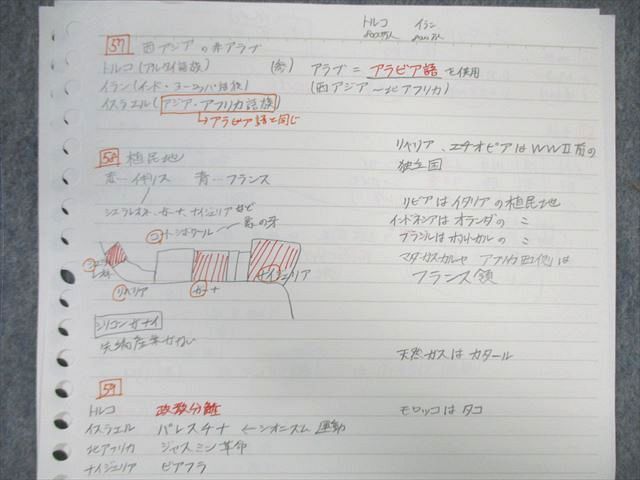 トルコ　イラン
57 西アジアの非アラブ
トルコ(アルタイ語族)　(参)　アラブ = アラビア語を使用
イラン(インド・ヨーロッパ語族)　(西アジア〜北アフリカ)
イスラエル(アジア・アフリカ語族)
→アラビア語と同じ
58 植民地
リベリア、エチオピアはWWⅡ前の
独立国
イギリス　青…フランス
シエラレオネ、ガーナ、ナイジェリアなど
リビアはイタリアの植民地
インドネシアはオランダの 〃
ブラジルはポルトガルの 〃
マダガスカルや アフリカ西側は
フランス領
②コートジボワール
リベリア
ガーナ
ナイジェリア
シリコンサバナ
先端産業
天然ガスはカタール
59
トルコ　政教分離
モロッコはタコ
イスラエル　パレスチナ　←シオニズム運動
北アフリカ　ジャスミン革命
ナイジェリア　ビアフラ